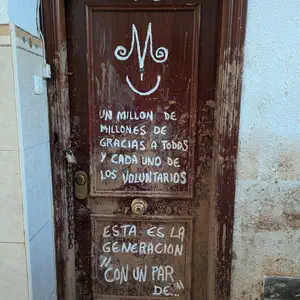 M
UN MILLON DE
MILLONES DE
GRACIAS A TODOS
Y CADA UNO DE
LOS VOLUNTARIOS
ESTA ES LA
GENERACION
"CON UN PAR
DE..."